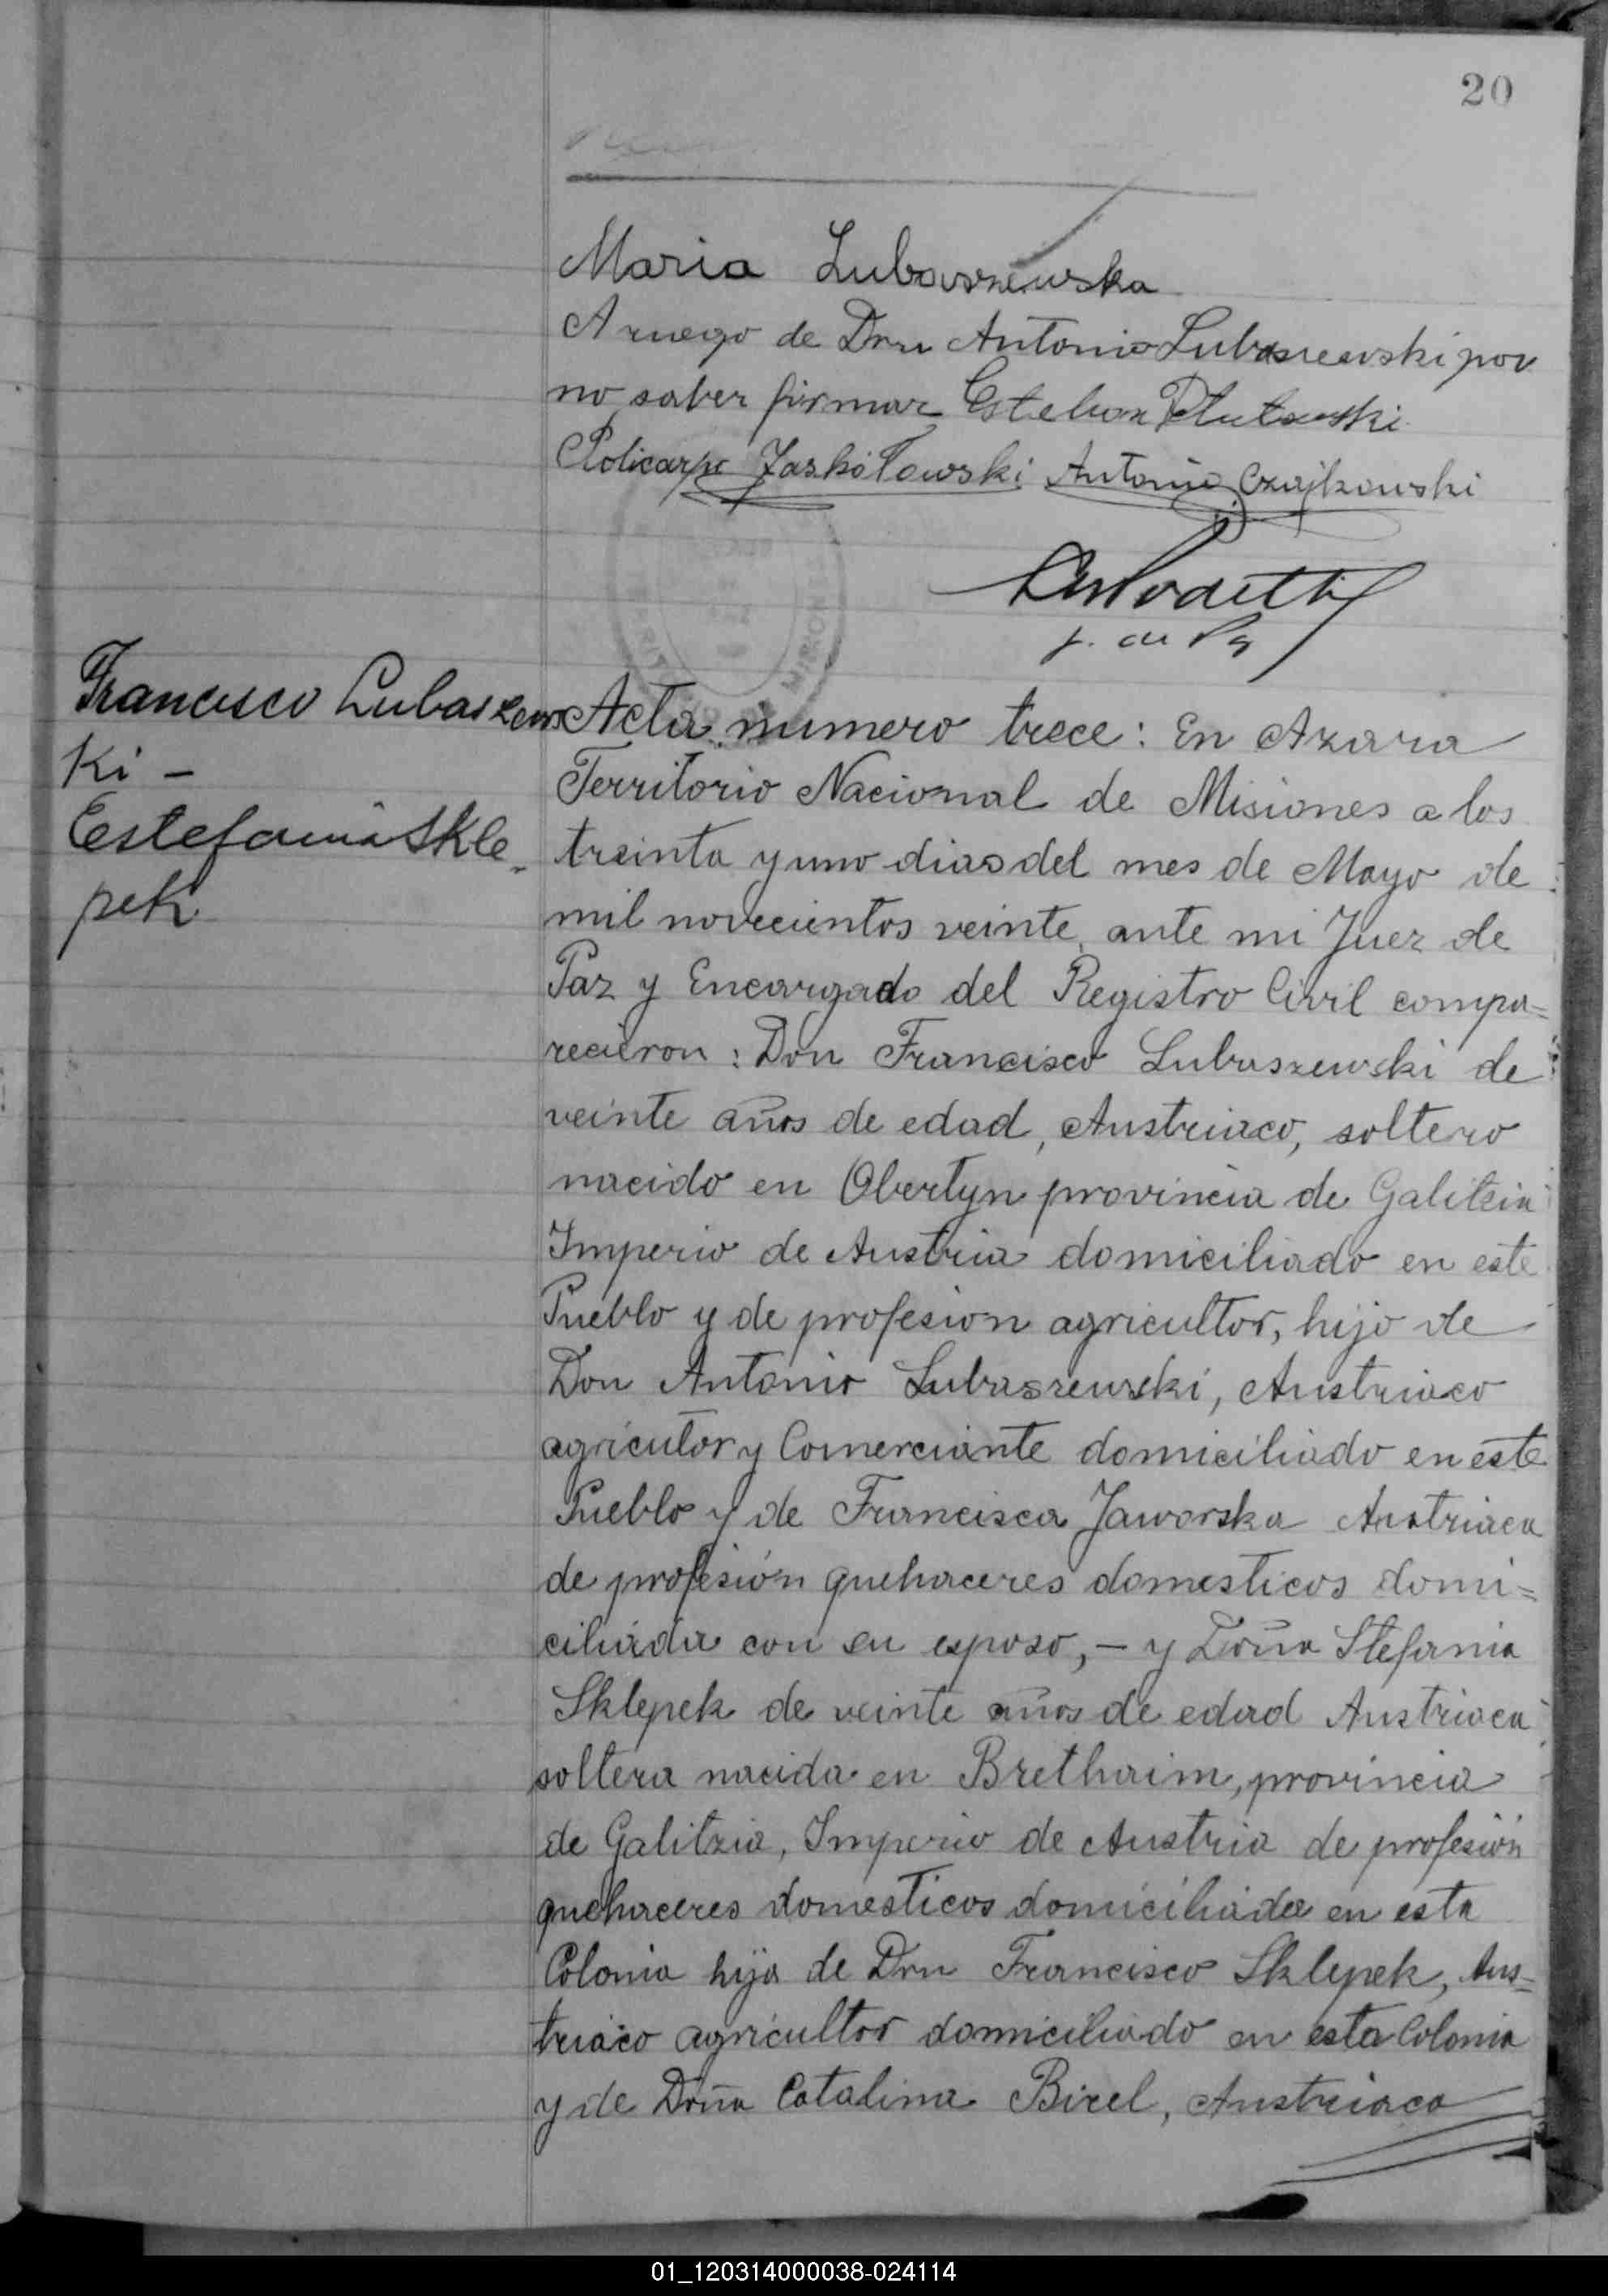 20
Maria Lubaszewska
A ruego de Don Antonio Lubaszewski por
no saber firmar Esteban
Policarpo Jaskółowski Antonio Czajkowski
J. de Pz
Francisco Lubaszews
ki –
Estefania Skle
pek
Acta numero trece: En Azara
Territorio Nacional de Misiones a los
treinta y uno dias del mes de Mayo de
mil novecientos veinte, ante mi Juez de
Paz y Encargado del Registro Civil compa=
recieron: Don Francisco Lubaszewski de
veinte años de edad, Austriaco, soltero
nacido en Obertyn provincia de Galitzia
Imperio de Austria domiciliado en este
Pueblo y de profesion agricultor, hijo de
Don Antonio Lubaszewski, Austriaco
agricutor y Comerciante domiciliado en este
Pueblo y de Francisca Jaworska Austriaca
de profesión quehaceres domesticos domi=
ciliada con su esposo, – y Doña Stefania
Sklepek de veinte años de edad Austriaca
soltera nacida en Brethaim, provincia
de Galitzia, Imperio de Austria de profesión
quehaceres domesticos domiciliada en esta
Colonia hija de Don Francisco Sklepek, Aus=
triaco agricultor domiciliado en esta Colonia
y de Doña Catalina Bizel, Austriaca
01_120314000038-024114